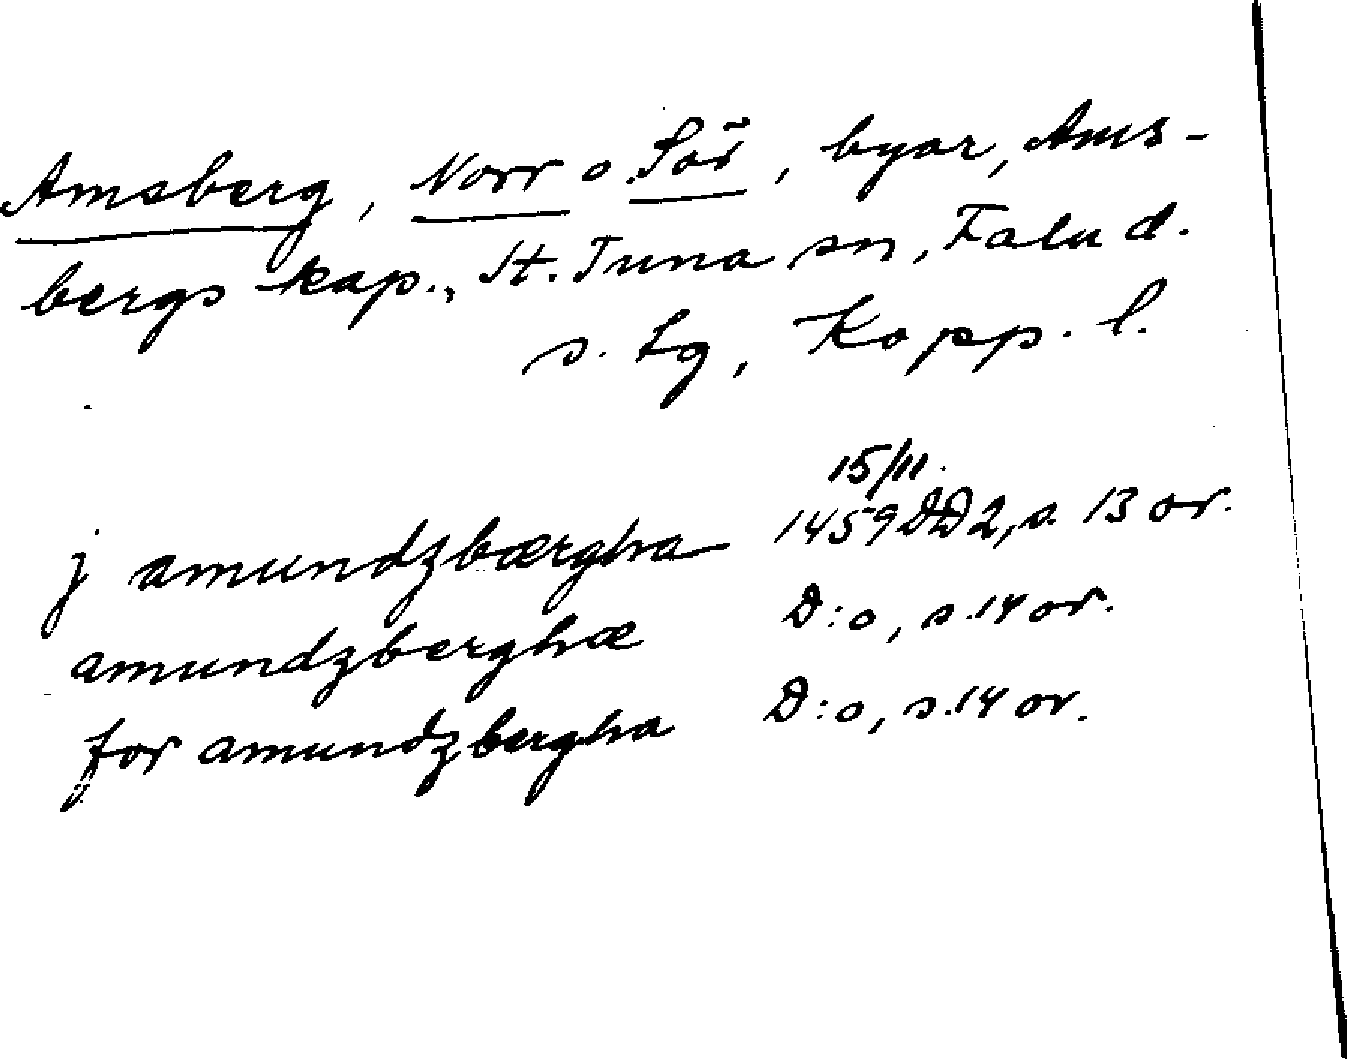 Amsberg, Norr o. Sör, byar, Ams-
bergs kap., St. Tuna sn, Falu d.
s. lg, Kopp. l.
15/11.
j amundzbærgha 1459 DD2, s. 13 or.
amundzberghæ D:o, s. 14 or.
for amundzbergha D:o, s. 14 or.